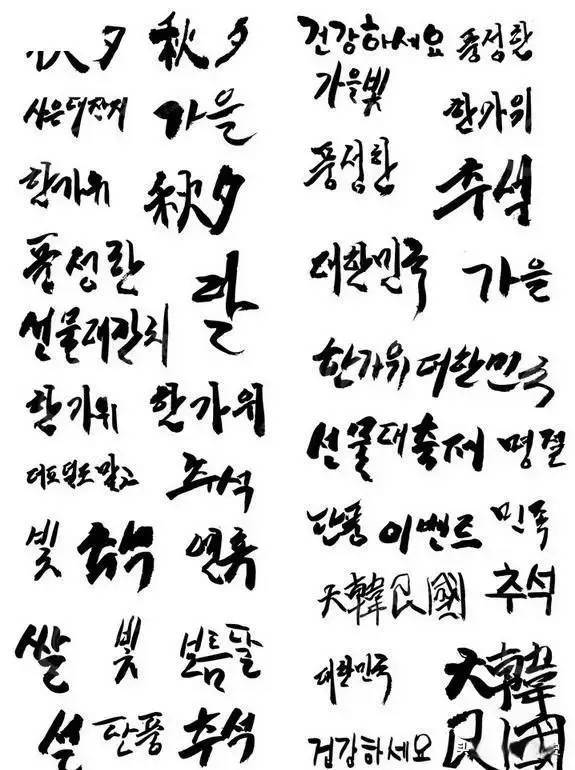 秋夕 秋夕
사은대잔치 가을
한가위 秋夕
풍성한 달
선물대잔치
한가위 한가위
더도 덜도 말고 추석
빛 추석 연휴
쌀 빛 보름달
설 단풍 추석
건강하세요 풍성한
가을빛 한가위
풍성한 추석
대한민국 가을
한가위 대한민국
선물대축제 명절
단풍 이벤트 민족
大韓民國 추석
대한민국 大韓
건강하세요 民國